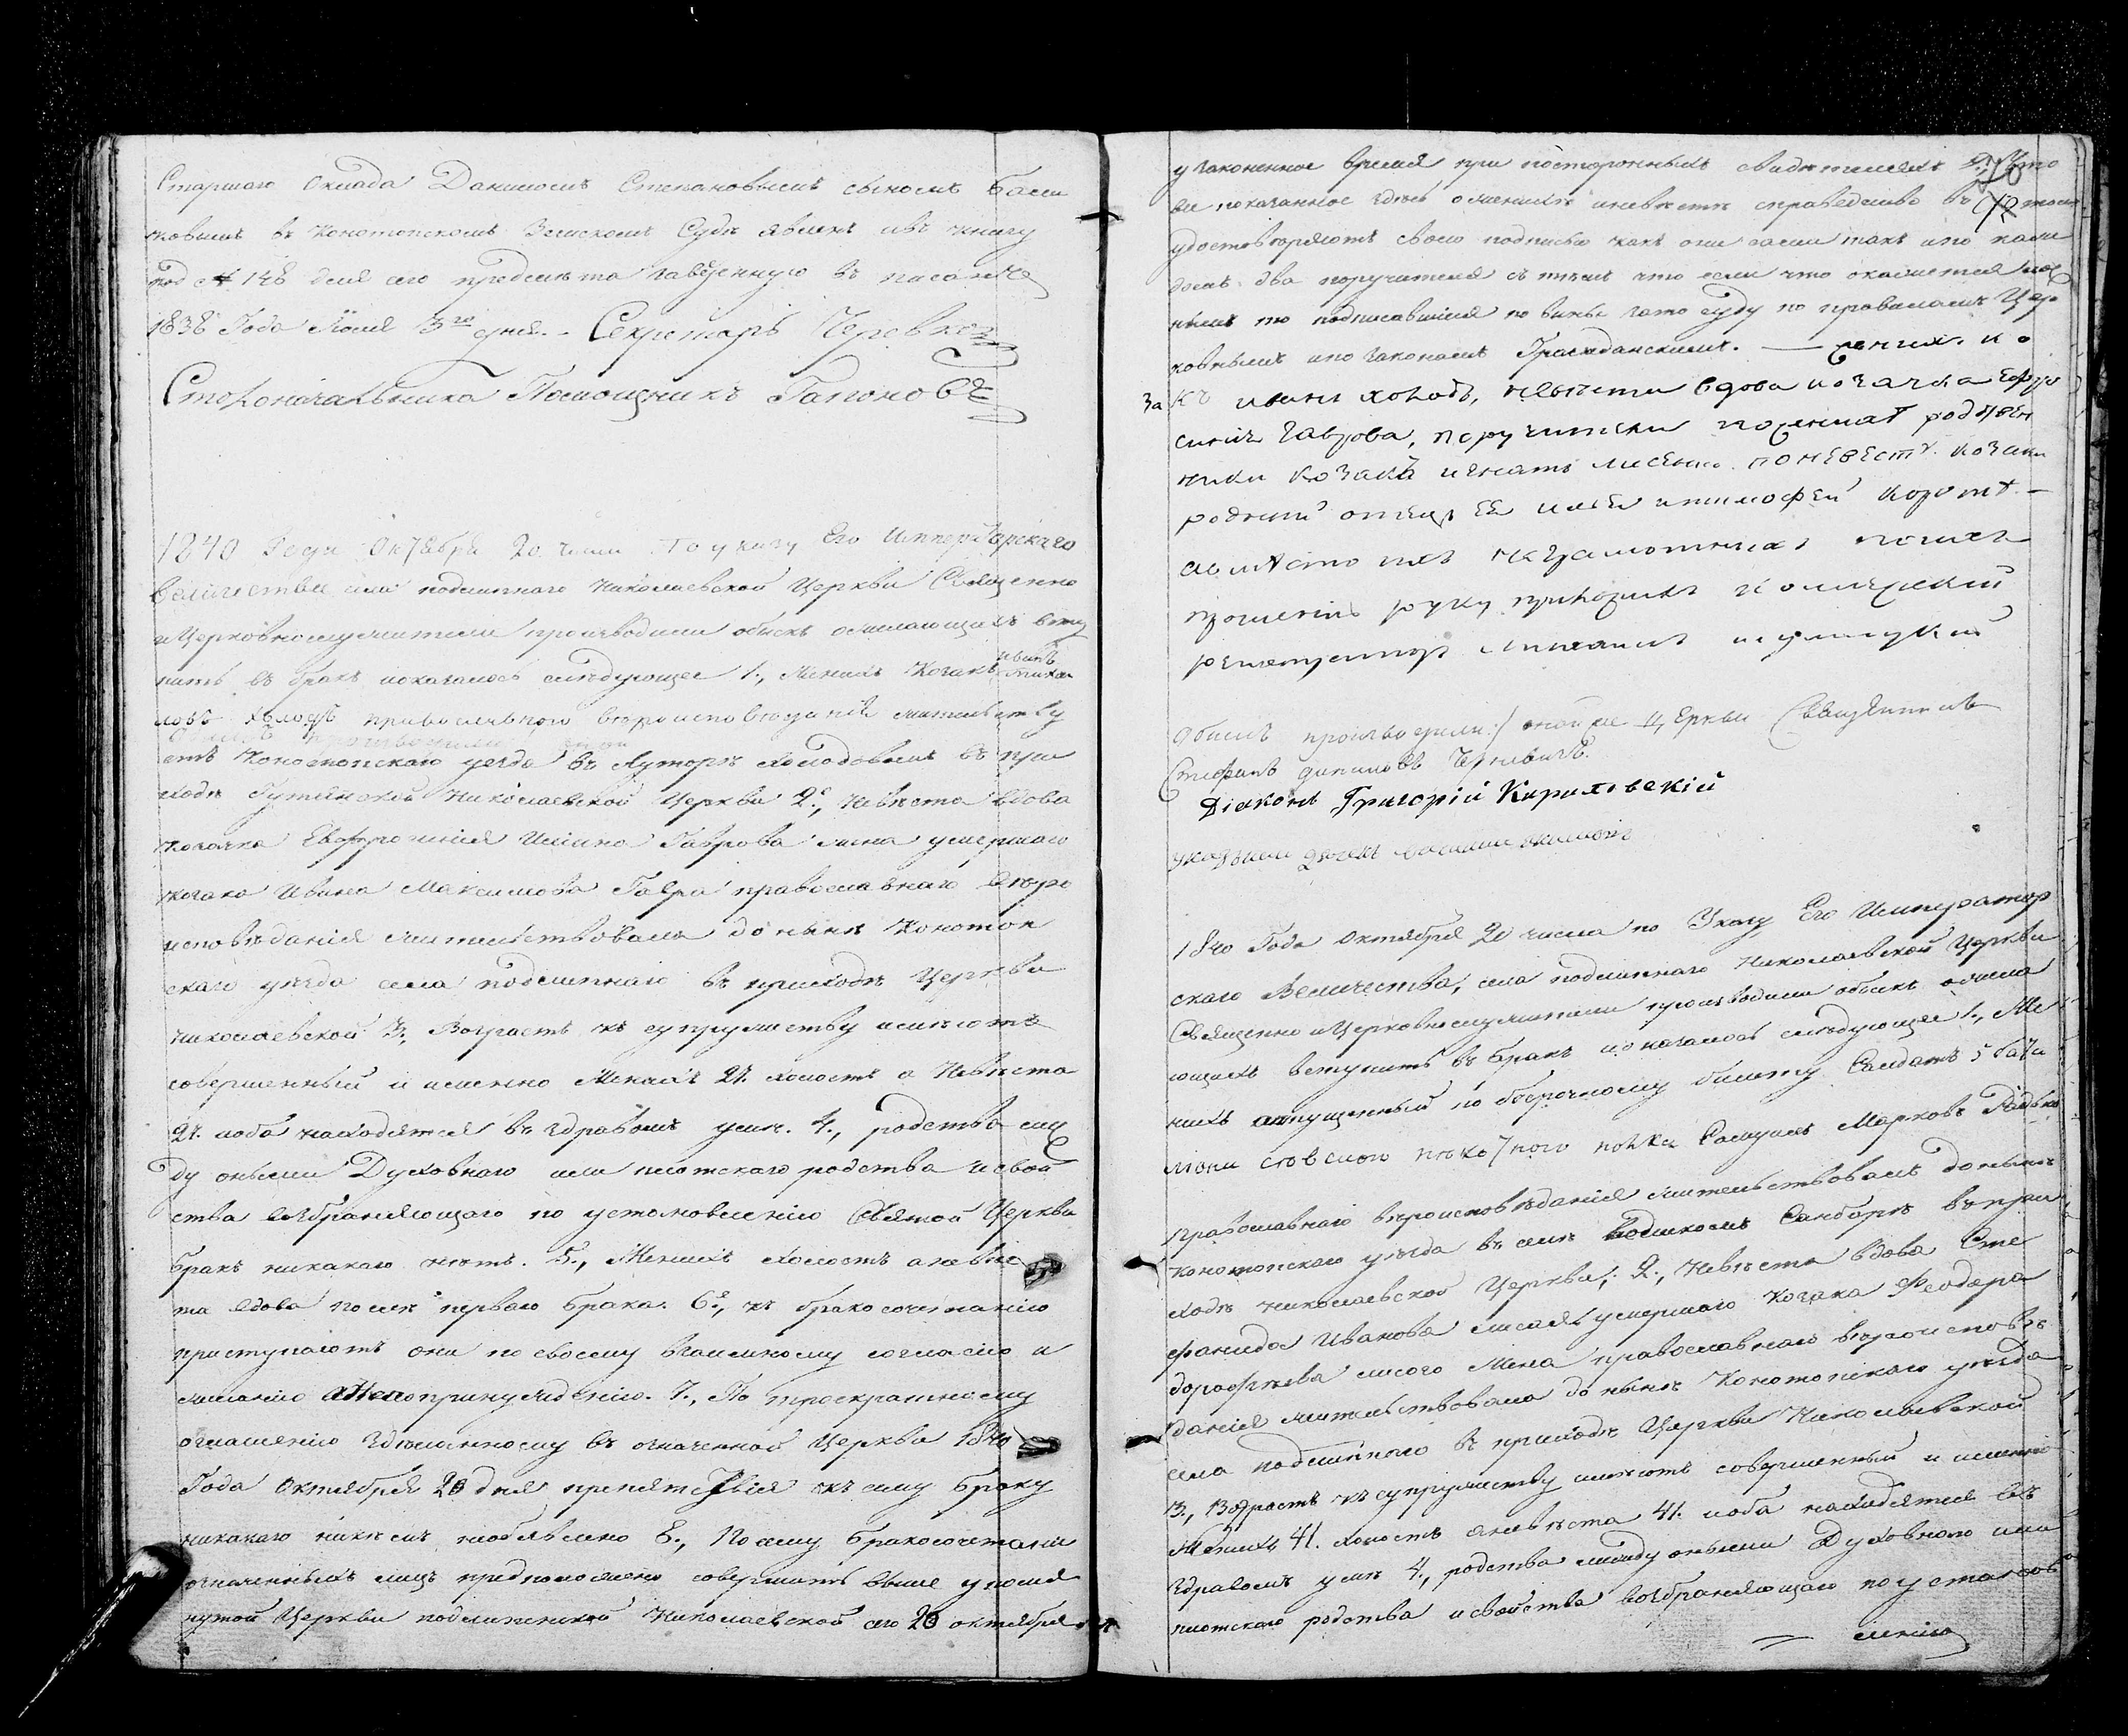 Старшаго Оклада Данилом Степановымъ сыномъ Баси
ковымъ въ Конотопскомъ Земскомъ Судѣ явленъ ивъ книгу
под № 148 для его предмѣта заведенную въ писанъ
1838 Года Іюля 3го дня. – Секретарь Черевко
Столоначальника Помощникъ Гапоновъ
1840 Года Октября 20 числа По указу Его Императорскаго
Величества села подлипнаго Николаевской Церкви Священно
иЦерковнослужители производили обыскъ ожелающихъ всту
пить въ бракъ иоказалось слѣдующее 1., Женихъ Козакъ иванъ Михаи
ловъ холодъ православнаго вѣроисповѣданія жительству
етъ Конотопскаго уезда въ Хуторѣ Холодовымъ въ при
ходѣ Гутянской Николаевской Церкви 2е, Невѣста вдова
козачка Евфросинія Ильина Гаврова жена умершаго
козака Ивана Максимова Гавра православнаго вѣро
исповѣданія жительствовала до нынѣ Конотоп
скаго уѣзда села подлипнаго въ приходѣ Церкви
николаевской 3., Возрастъ къ супружеству имѣютъ
совершенный и именно Женихъ 27. холостъ а Невѣста
27. иоба находятся въ здравомъ умѣ. 4., родства меж
ду оными Духовнаго или плотскаго родства исвой
ства возбраняющаго по установленію Святой Церкви
бракъ никакаго нѣтъ. 5., Женихъ холостъ аневѣс
та вдова послѣ перваго брака. 6е, къ бракосочетанію
приступаютъ они по своему взаимному согласію и
желанію анепопринужденію. 7., По троекратному
оглашенію здѣланному въ означенной Церкви 1840
Года Октября 20 дня препятствія къ сему браку
никакаго никѣмъ необъявлено 8., Посему бракосочетаніе
означенныхъ лицъ предположено совершить выше упомя
нутой Церкви подлипенской Николаевской сего 20 октября
узаконенное время при постороннихъ свидѣтеляхъ 9., Что
все показанное здѣсь оженихѣ иневѣстѣ справедливо въ томъ
удостовѣряютъ своею подписью какъ они сами такъ ипо каж
домъ два поручителя стѣмъ что если что окажется лож
нымъ то подписавшіяся повинны зато суду по правиламъ Цер
ковнымъ ипо законамъ Гражданскимъ. — женихъ. ко
За къ иванъ холодъ, невѣсти вдова козачка Евфро
синія Гаврова, поручители поженихѣ родствен
ники козаки игнатъ лисенко. поневестѣ. козаки
родний отецъ ее илья итимофей коротѣ –
авмѣсто ихъ неграмотнихъ поихъ
прошенію руку приложилъ коллежский
регистраторъ михаилъ
Обыскъ производили:/ тойже Церкви Священникъ
Стефанъ даниловъ Черневичъ.
Діаконъ Григорій Кириловскій
указный дячекъ василий
1840 Года Октября 20 числа по Указу Его Император
скаго Величества, села подлипнаго Николаевской Церкви
Священно иЦерковнослужители производили обыскъ ожела
ющихъ вступить въ бракъ иоказалось слѣдующее 1., Же
нихъ отпущенный по безсрочному билету Салдатъ 5 бата
ліони пѣхотного полка Самуилъ Марковъ
православнаго вѣроисповѣданія жительствовалъ донынѣ
конотопскаго уѣзда въ селѣ Самборѣ въ при
ходѣ николаевской Церкви; 2., Невѣста вдова Сте
фанида Иванова умершаго Козака Феодора
дорофѣева лисого Жена православнаго вѣроисповѣ
данія жительствовала до нынѣ Конотопскаго уѣзда
села подлипнаго въ приходѣ Церкви Николаевской
3., Возрастъ къ супружеству имѣютъ совершенный и именно
Женихъ 41. холостъ аневѣста 41. иоба находятся въ
здравомъ умѣ 4., родства между оными Духовнаго или
плотскаго родства исвойства возбраняющаго поустанов
ленію